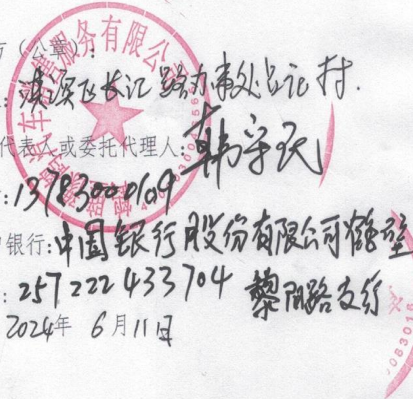 方（公章）：
淇滨区长江路办事处吕庄村.
代表人或委托代理人：韩守民
：13783000109
银行：中国银行股份有限公司鹤壁
：257222433704 黎阳路支行
2024年 6月11日
汽车租赁服务有限公司